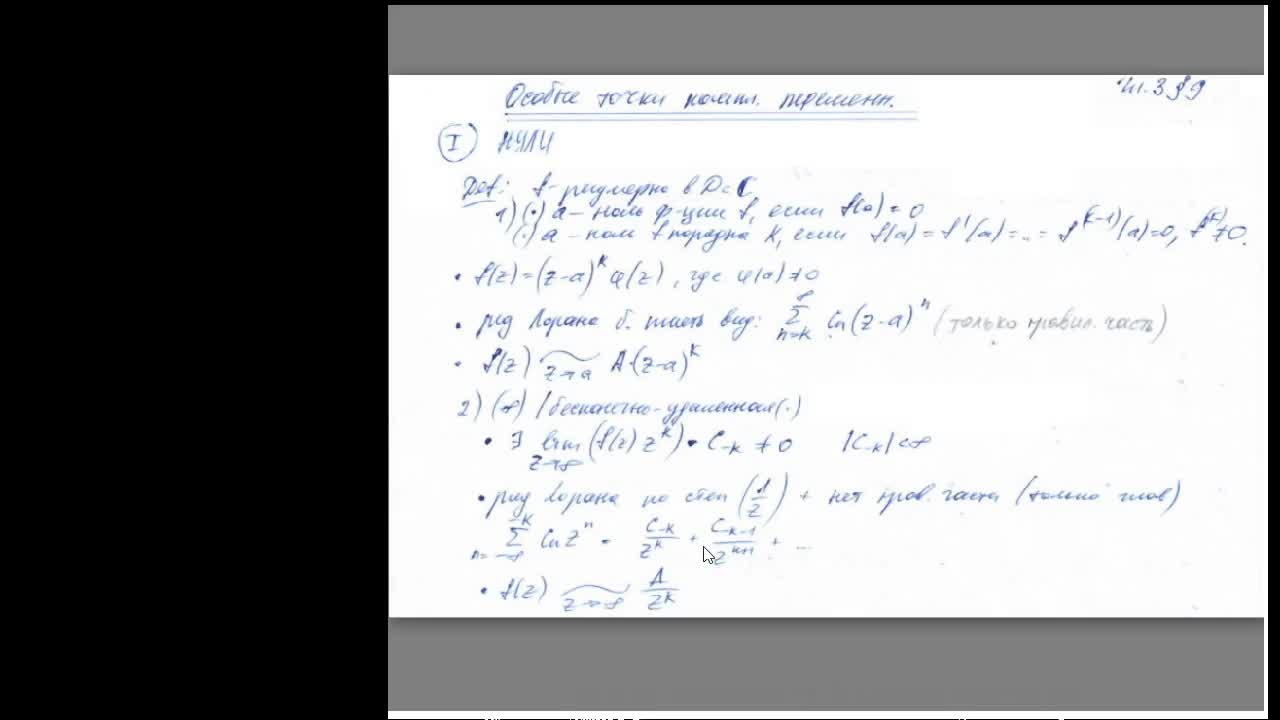 Особые точки компл. перемен.
Гл. 3 § 9
I НУЛИ
Def: f - регулярна в D ⊂ C
1) (·) a – ноль ф-ции f, если f(a) = 0
(·) a – ноль f порядка k, если f(a) = f'(a) = ... = f^(k-1)(a) = 0, f^(k) ≠ 0.
• f(z) = (z-a)^k φ(z), где φ(a) ≠ 0
• ряд Лорана б. иметь вид: ∑_{n=k}^{∞} Cn (z-a)^n (только правил. часть)
• f(z) ~_{z→a} A·(z-a)^k
2) (∞) / бесконечно-удаленная (·)
• ∃ lim_{z→∞} (f(z) z^k) = C_{-k} ≠ 0 |C_{-k}| < ∞
• ряд Лорана по степ (1/z) + нет прав. части (только глав)
∑_{n=-∞}^{-k} Cn z^n = C_{-k}/z^k + C_{-k-1}/z^{k+1} + ...
• f(z) ~_{z→∞} A/z^k